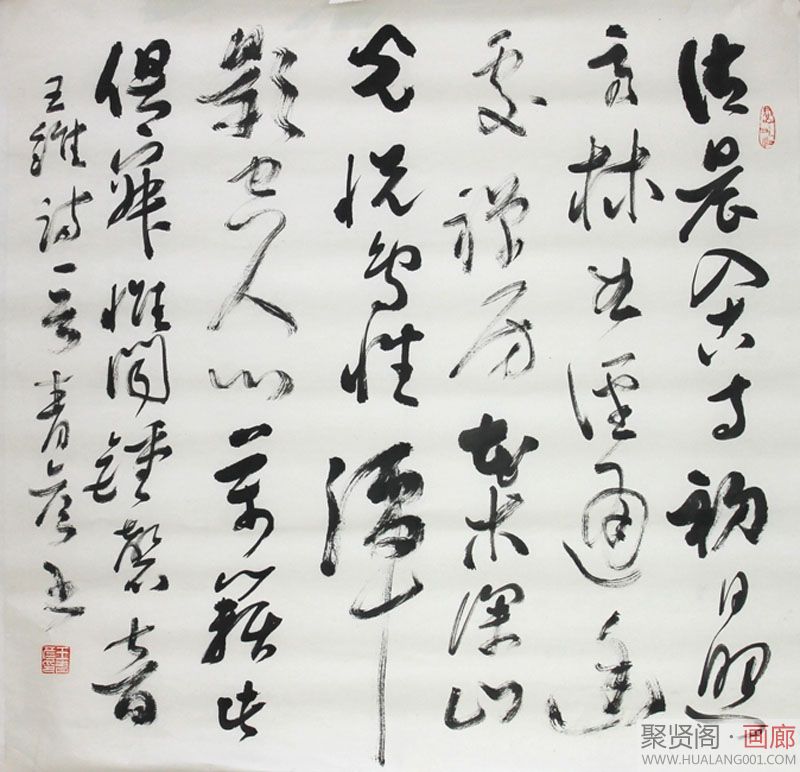 清晨入古寺初日照
高林竹徑通幽
處禪房花木深山
光悦鳥性潭
影空人心萬籟此
俱寂惟聞鐘磬音
王維詩一首青彦书
聚贤阁·画廊
WWW.HUALANG001.COM